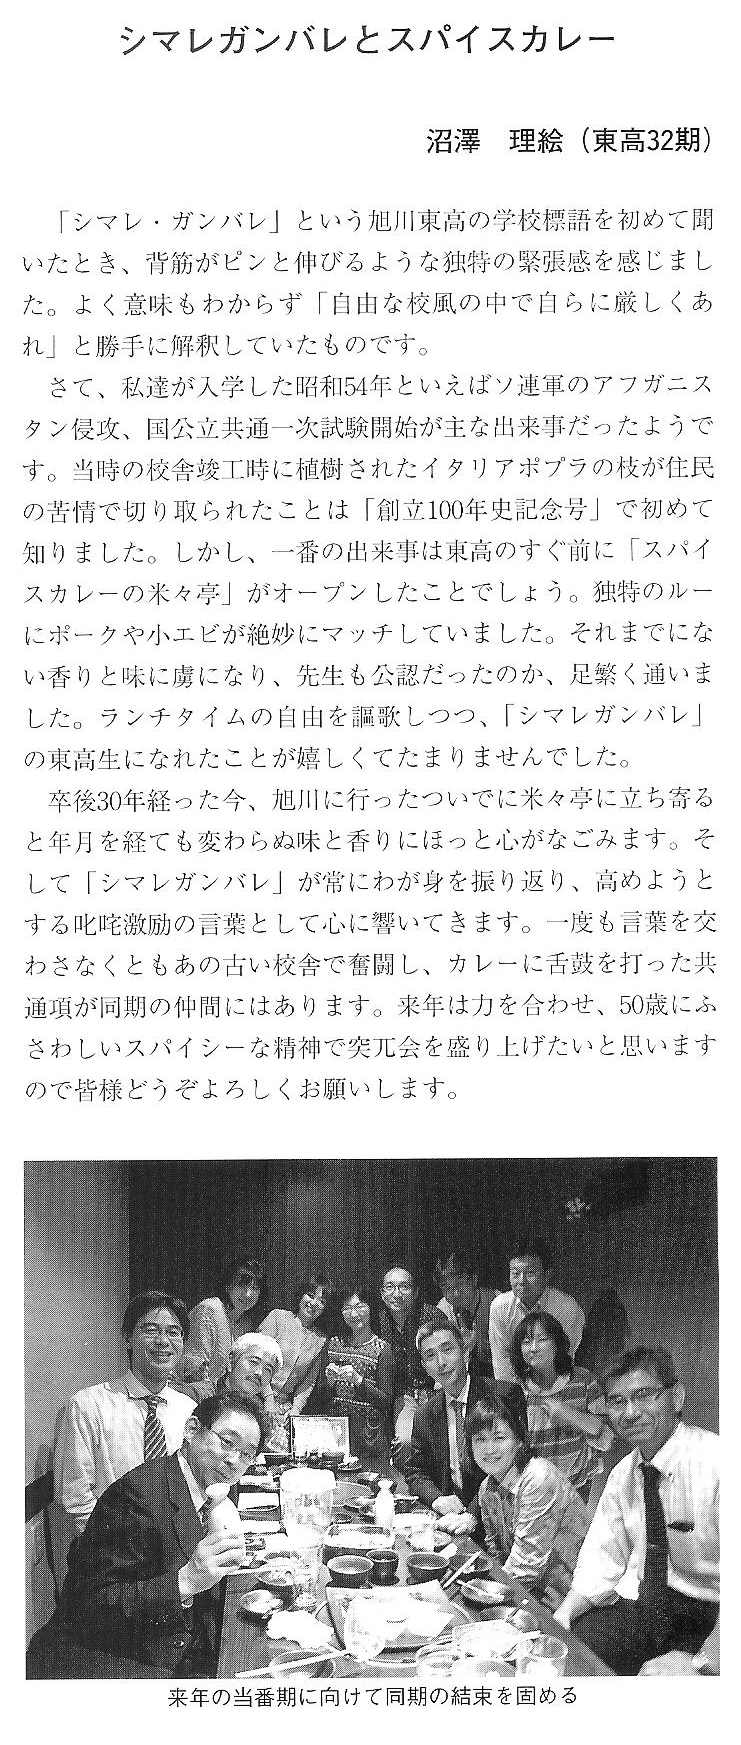 シマレガンバレとスパイスカレー
沼澤　理絵（東高32期）
「シマレ・ガンバレ」という旭川東高の学校標語を初めて聞
いたとき、背筋がピンと伸びるような独特の緊張感を感じまし
た。よく意味もわからず「自由な校風の中で自らに厳しくあ
れ」と勝手に解釈していたものです。
さて、私達が入学した昭和54年といえばソ連軍のアフガニス
タン侵攻、国公立共通一次試験開始が主な出来事だったようで
す。当時の校舎竣工時に植樹されたイタリアポプラの枝が住民
の苦情で切り取られたことは「創立100年史記念号」で初めて
知りました。しかし、一番の出来事は東高のすぐ前に「スパイ
スカレーの米々亭」がオープンしたことでしょう。独特のルー
にポークや小エビが絶妙にマッチしていました。それまでにな
い香りと味に虜になり、先生も公認だったのか、足繁く通いま
した。ランチタイムの自由を謳歌しつつ、「シマレガンバレ」
の東高生になれたことが嬉しくてたまりませんでした。
卒後30年経った今、旭川に行ったついでに米々亭に立ち寄る
と年月を経ても変わらぬ味と香りにほっと心がなごみます。そ
して「シマレガンバレ」が常にわが身を振り返り、高めようと
する叱咤激励の言葉として心に響いてきます。一度も言葉を交
わさなくともあの古い校舎で奮闘し、カレーに舌鼓を打った共
通項が同期の仲間にはあります。来年は力を合わせ、50歳にふ
さわしいスパイシーな精神で突兀会を盛り上げたいと思います
ので皆様どうぞよろしくお願いします。
来年の当番期に向けて同期の結束を固める